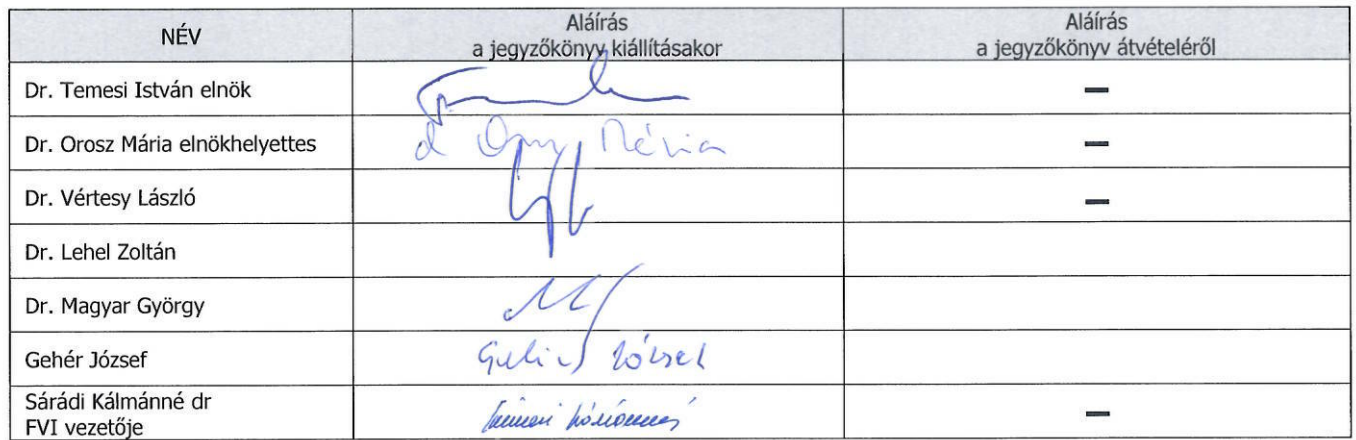 NÉV
Aláírás
a jegyzőkönyv kiállításakor
Aláírás
a jegyzőkönyv átvételéről
Dr. Temesi István elnök
–
Dr. Orosz Mária elnökhelyettes
Mária
–
Dr. Vértesy László
–
Dr. Lehel Zoltán
Dr. Magyar György
Gehér József
Sárádi Kálmánné dr
FVI vezetője
–